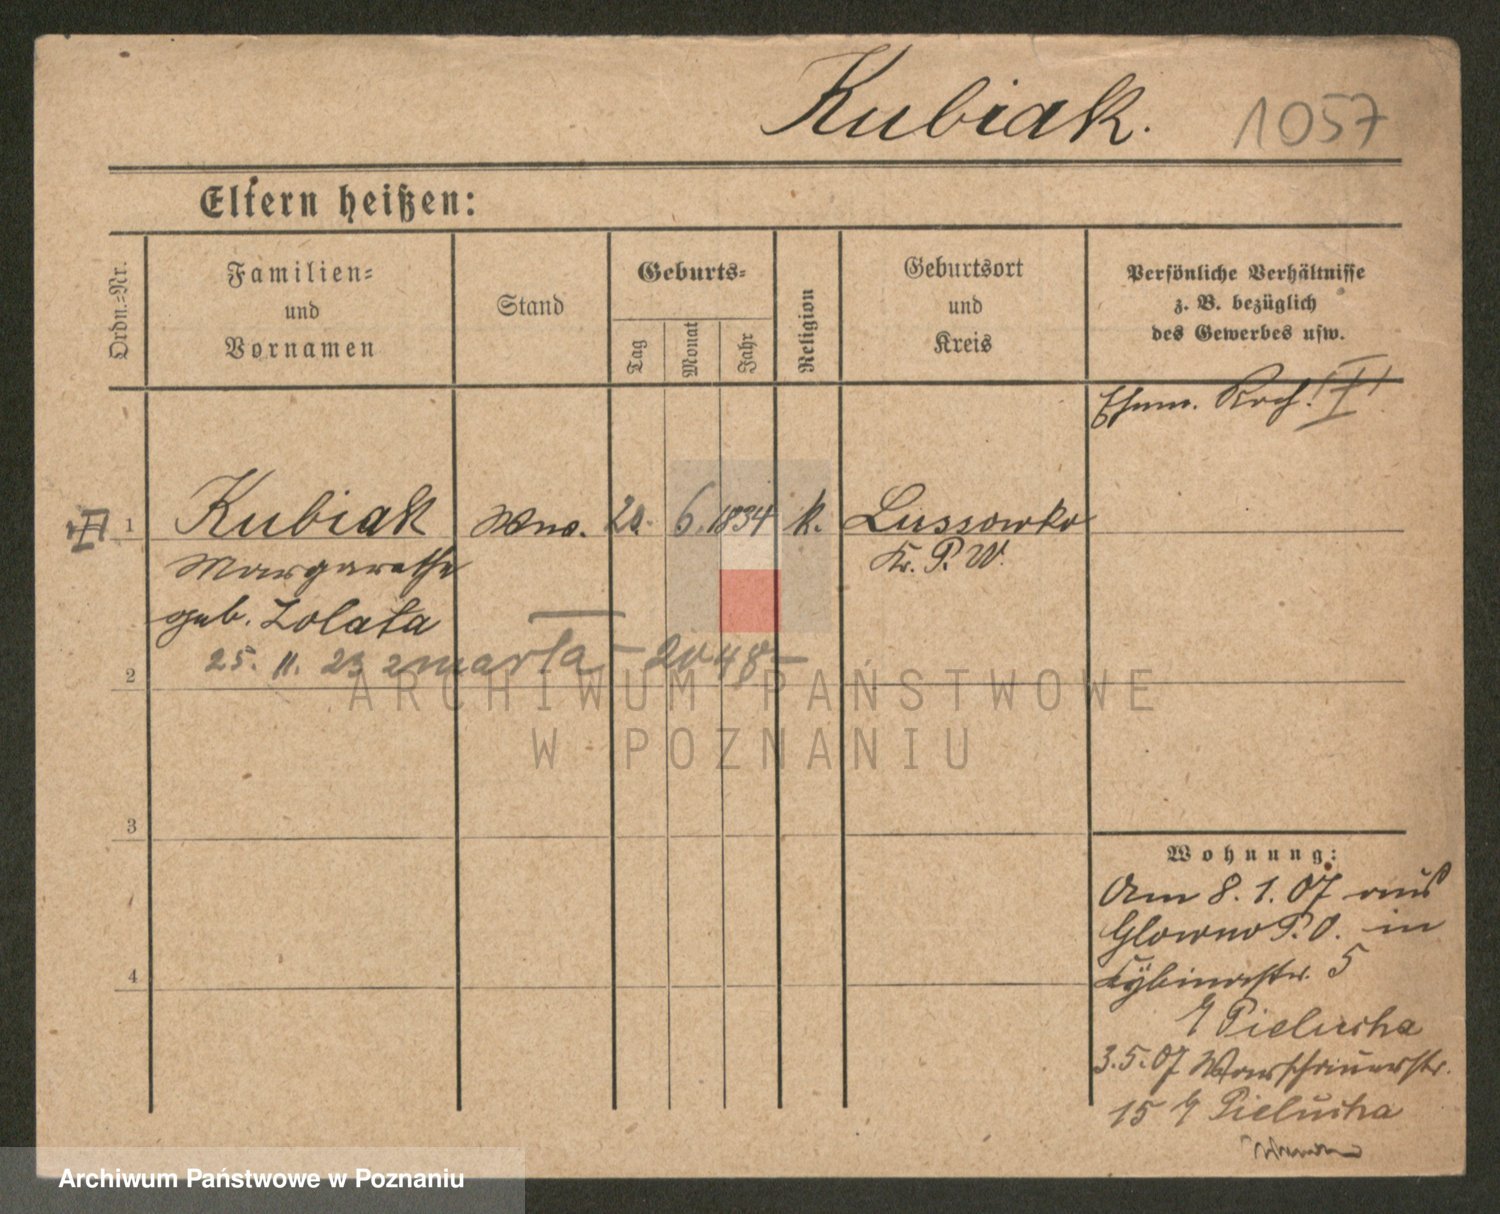 Kubiak. 1057
Eltern heißen:
Ordn.=Nr.
Familien=
und
Vornamen
Stand
Geburts=
Tag
Monat
Jahr
Religion
Geburtsort
und
Kreis
Persönliche Verhältnisse
z. B. bezüglich
des Gewerbes usw.
Ehem. Roch!
1 Kubiak Wwe. 20. 6. 1834 k. Lussowko
Margarethe Kr. P. W.
geb. Lolata
25. 11. 23 zmarła - 2048 -
2
3
4
Wohnung:
Am 8. 1. 07 aus
Glowno P. O. in
Cybinastr. 5
b/ Pielucha
3. 5. 07 Warschauerstr.
15 b/ Pielucha
ARCHIWUM PAŃSTWOWE
W POZNANIU
Archiwum Państwowe w Poznaniu